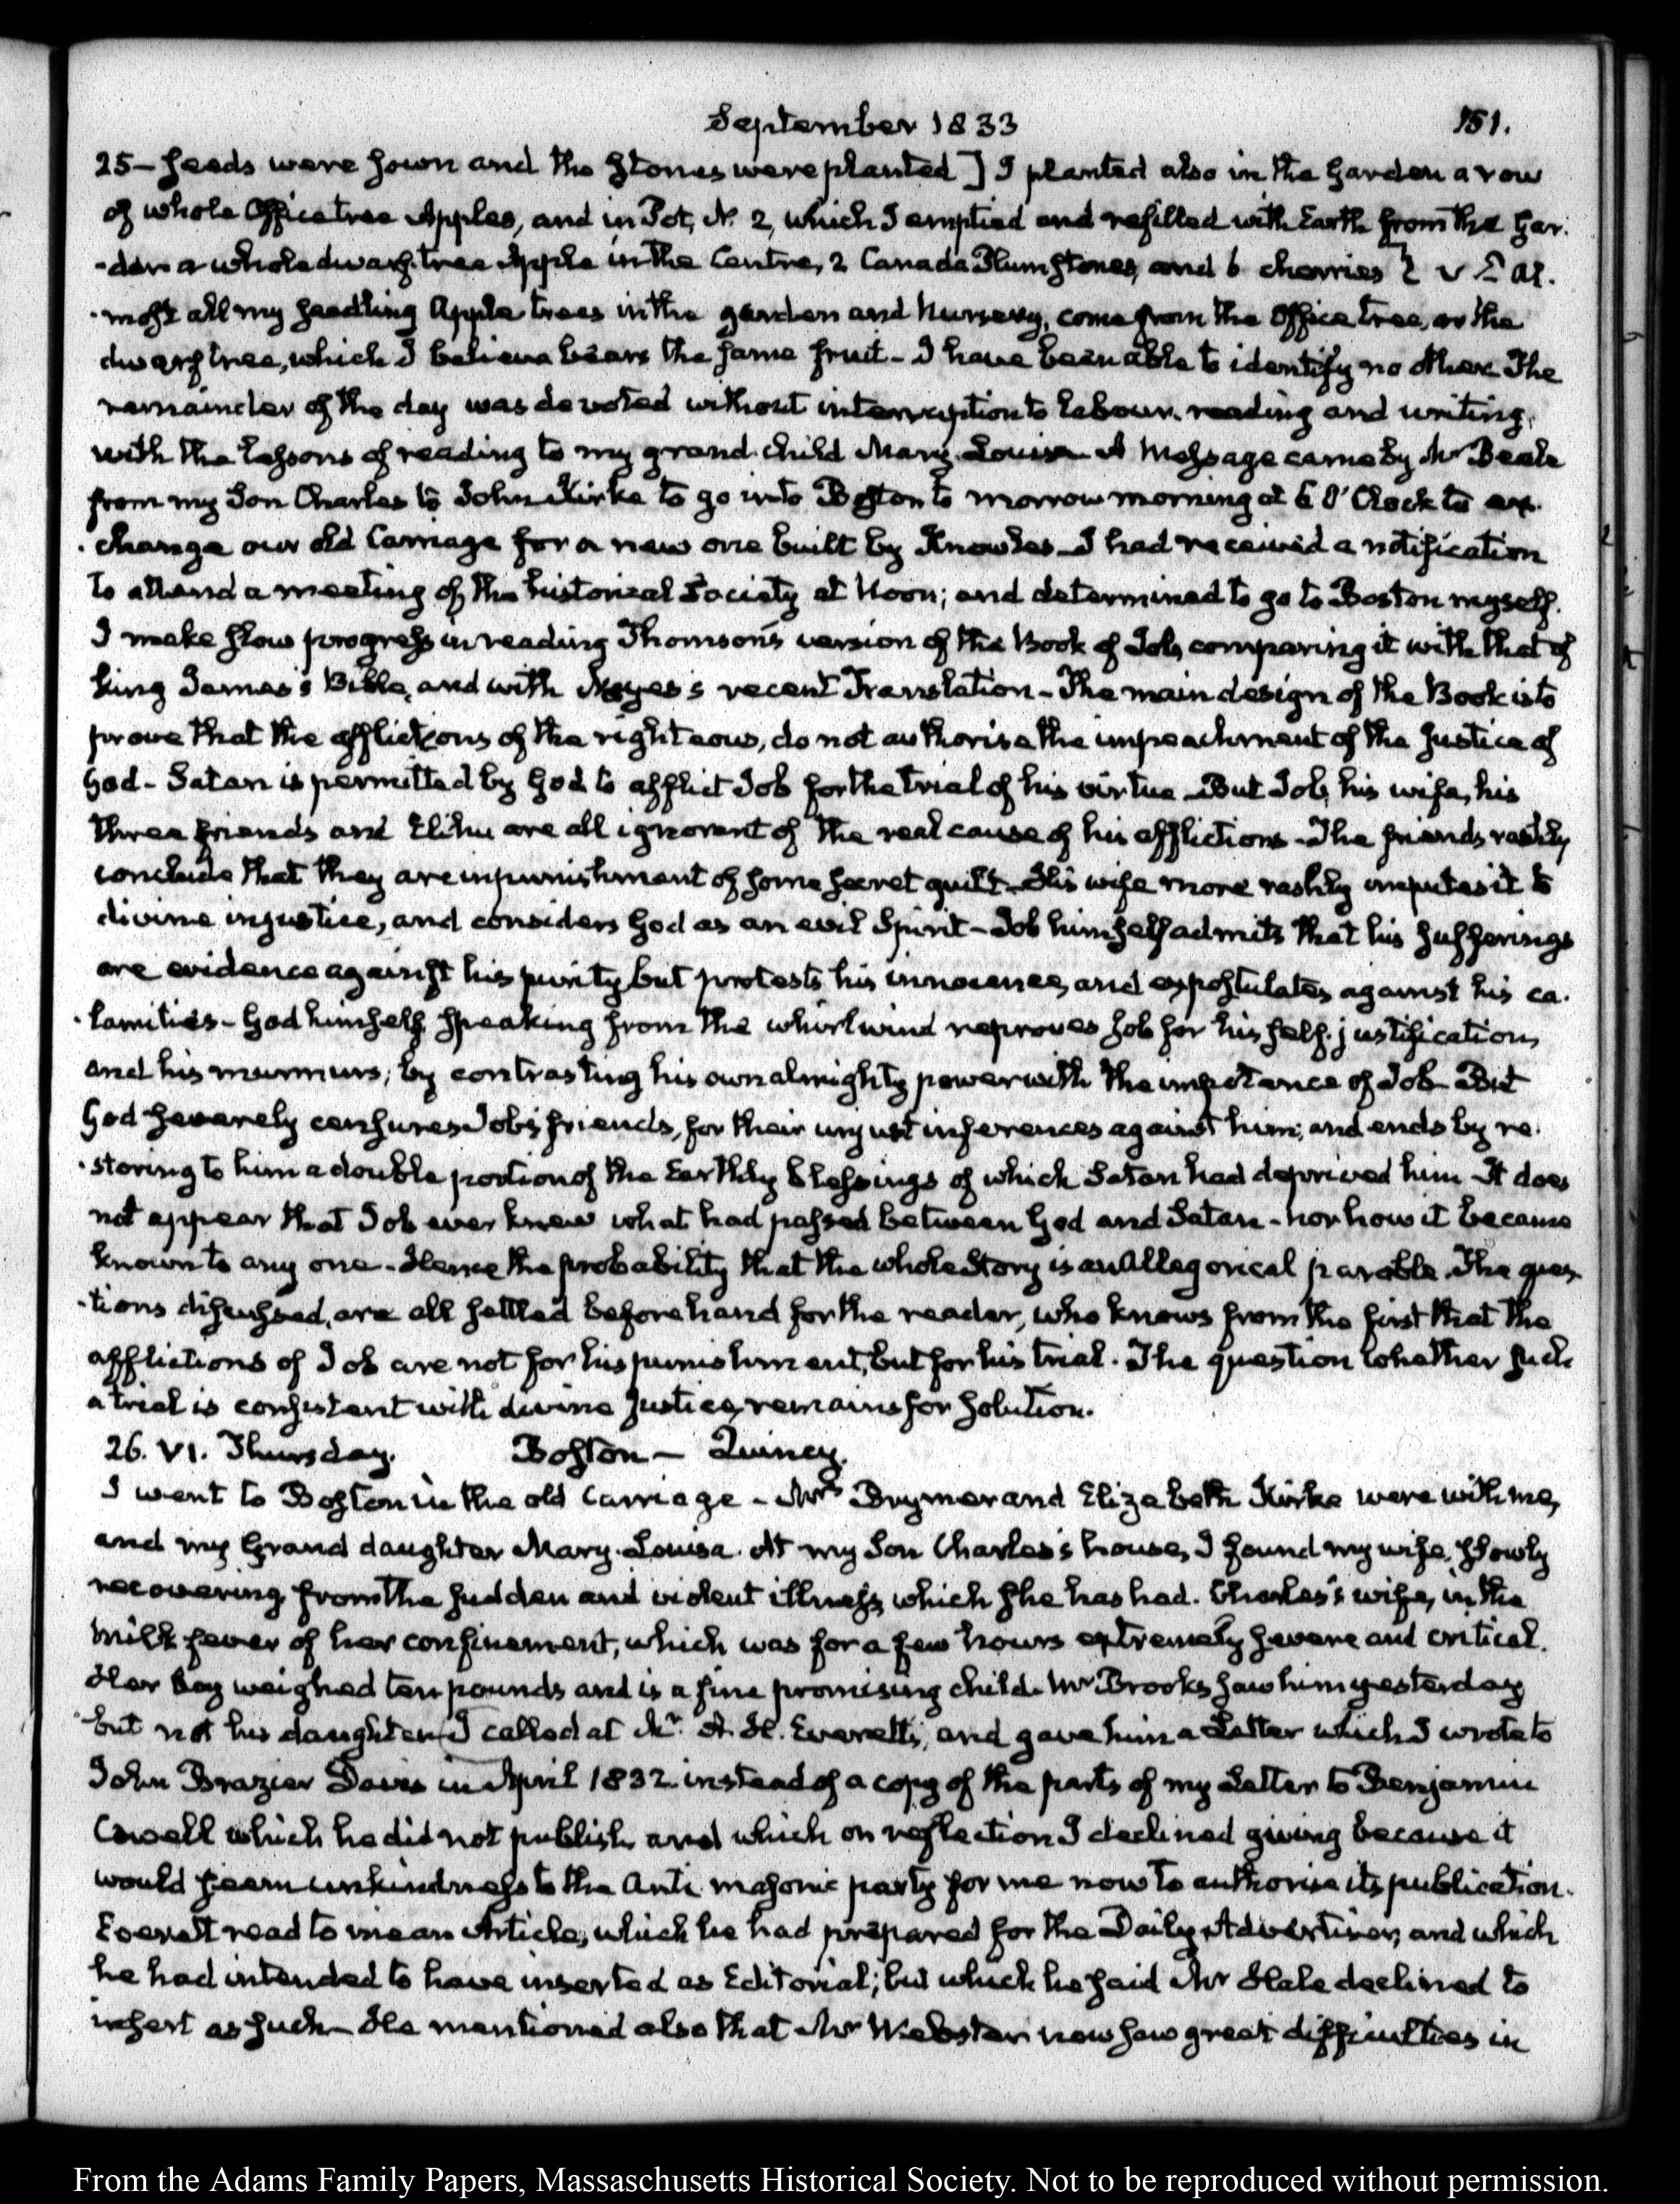 September 1833
151.
25— seeds were sown and the stones were planted] I planted also in the Garden a row
of whole Office tree Apples, and in Pot, N. 2, which I emptied and refilled with Earth from the Gar-
-den a whole dwarf-tree Apple in the Centre, 2 Canada Plum stones, and 6 cherries Al-
-most all my seedling Apple trees in the garden and Nursery, come from the Office tree, or the
dwarf tree, which I believe bears the same fruit - I have been able to identify no other. The
remainder of the day was devoted without interruption to labour, reading and writing,
with the lessons of reading to my grand-child Mary-Louisa. A Message came by Mr Beale
from my Son Charles to John Kirke to go into Boston to morrow morning at 6 O'Clock to ex-
-change our old Carriage for a new one built by Knowles - I had received a notification
to attend a meeting of the historical Society at Noon; and determined to go to Boston myself.
I make slow progress in reading Thomson's version of the Book of Job, comparing it with that of
king James's Bible, and with Noyes's recent Translation - The main design of the Book is to
prove that the afflictions of the righteous, do not authorise the impeachment of the Justice of
God - Satan is permitted by God to afflict Job for the trial of his virtue - But Job, his wife, his
three friends and Elihu are all ignorant of the real cause of his afflictions - The friends rashly
conclude that they are in punishment of some secret guilt - His wife more rashly imputes it to
divine injustice, and considers God as an evil Spirit - Job himself admits that his sufferings
are evidence against his purity, but protests his innocence, and expostulates against his ca-
-lamities - God himself, speaking from the whirlwind reproves Job for his self-justification,
and his murmurs; by contrasting his own almighty power with the impotence of Job - But
God severely censures Job's friends, for their unjust inferences against him; and ends by re-
-storing to him a double portion of the Earthly blessings of which Satan had deprived him - It does
not appear that Job ever knew what had passed between God and Satan - nor how it became
known to any one - Hence the probability that the whole Story is an Allegorical parable. The ques-
-tions discussed, are all settled beforehand for the reader, who knows from the first that the
afflictions of Job are not for his punishment, but for his trial. The question whether such
a trial is consistent with divine Justice, remains for solution.
26. VI. Thursday. Boston — Quincy.
I went to Boston in the old Carriage - Mrs Drymer and Elizabeth Kirke were with me,
and my Grand daughter Mary-Louisa. At my Son Charles's house, I found my wife, slowly
recovering from the sudden and violent illness which she has had. Charles's wife, in the
milk fever of her confinement, which was for a few hours extremely severe and critical.
Her boy weighed ten pounds and is a fine promising child. Mr Brooks saw him yesterday
but not his daughter. I called at Mr. A. H. Everett's, and gave him a Letter which I wrote to
John Brazier Davis in April 1832 instead of a copy of the parts of my Letter to Benjamin
Cowell which he did not publish, and which on reflection I declined giving because it
would seem unkindness to the Anti-masonic party for me now to authorise its publication.
Everett read to me an Article, which he had prepared for the Daily Advertiser, and which
he had intended to have inserted as Editorial; but which he said Mr Hale declined to
insert as such - He mentioned also that Mr Webster now saw great difficulties in
From the Adams Family Papers, Massachusetts Historical Society. Not to be reproduced without permission.